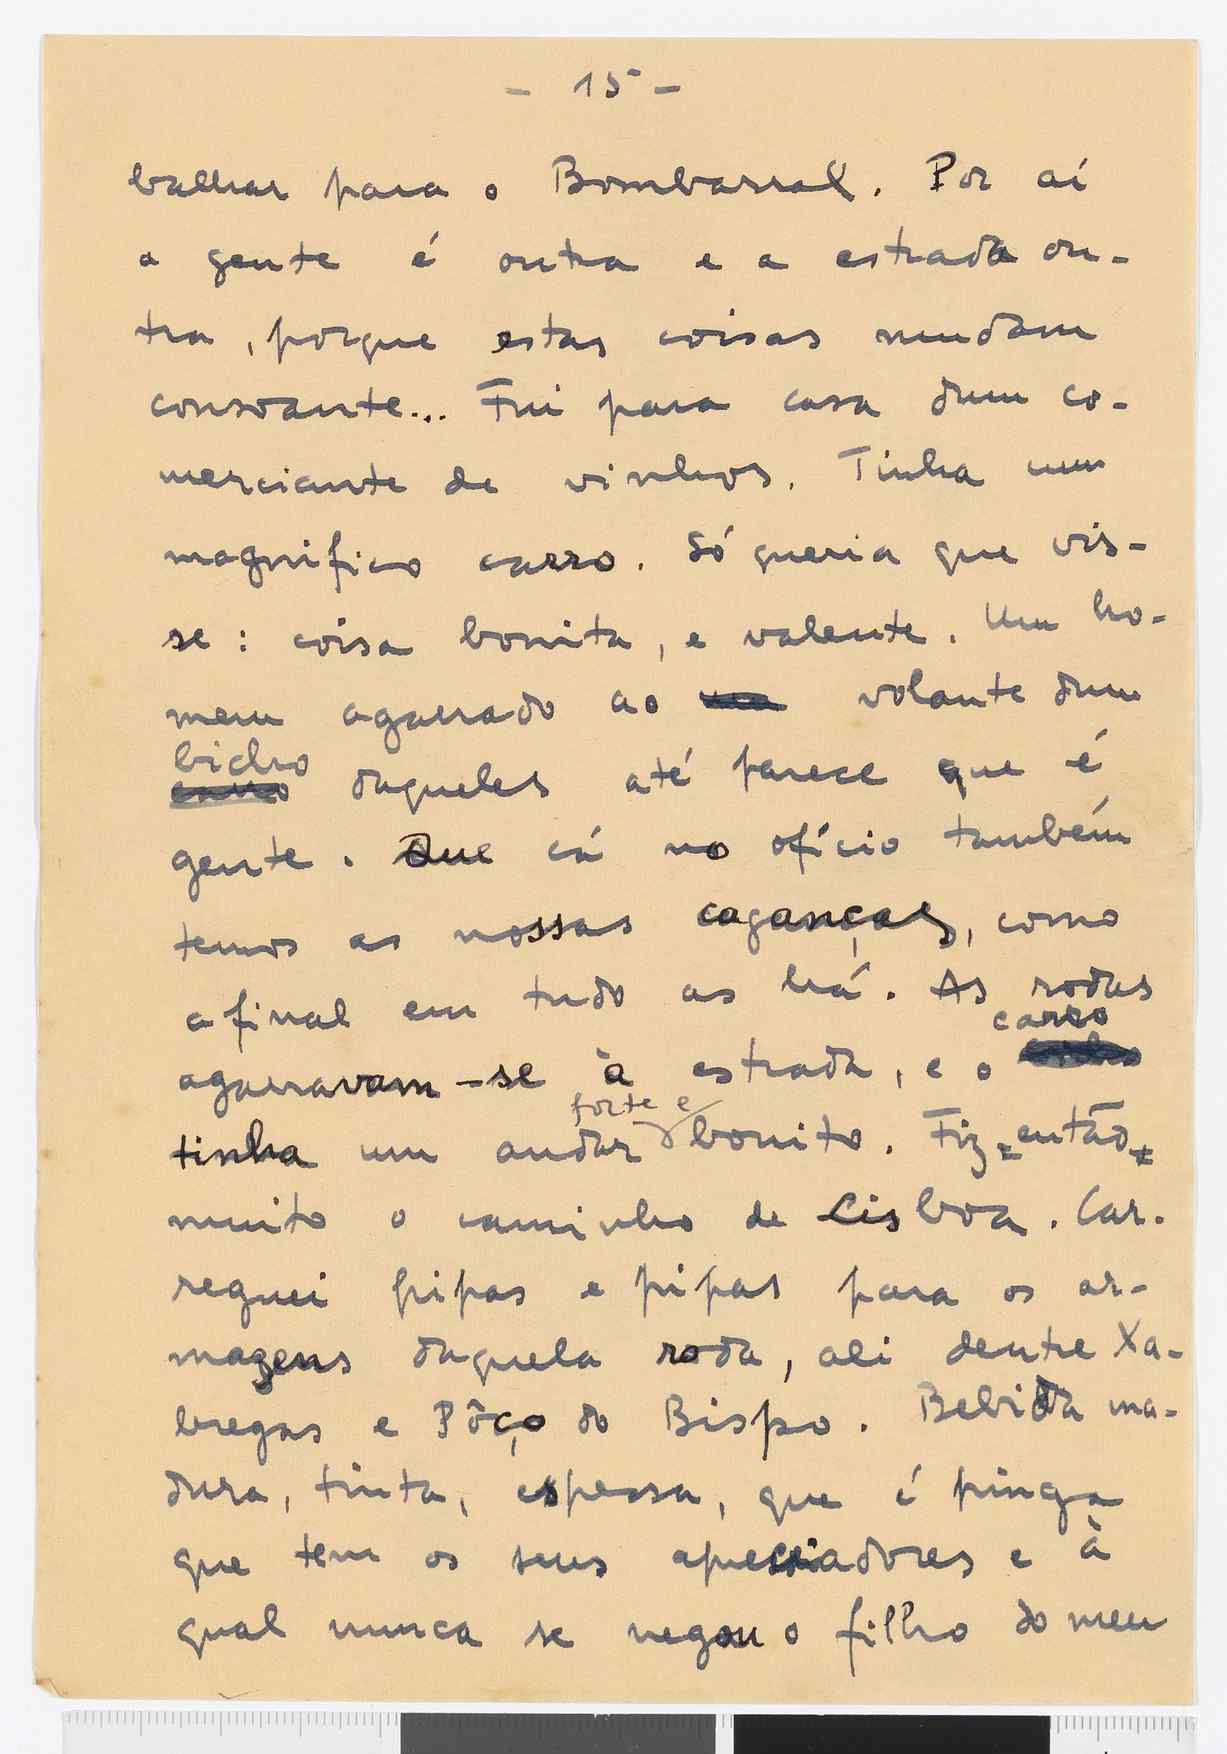 - 15 -
balhar para o Bombarral. Por aí
a gente é outra e a estrada ou-
tra, porque estas coisas mudam
consoante... Fui para casa dum co-
merciante de vinhos. Tinha um
magnífico carro. Só queria que vis-
se: coisa bonita, e valente. Um ho-
mem agarrado ao volante dum
bicho
carro daqueles até parece que é
gente. Que cá no ofício também
temos as nossas caganças, como
afinal em tudo as há. As rodas
carro
agarravam-se à estrada, e o bicho
forte e
tinha um andar bonito. Fiz então
muito o caminho de Lisboa. Car-
reguei pipas e pipas para os ar-
mazens daquela roda, ali dentre Xa-
bregas e Pôço do Bispo. Bebida ma-
dura, tinta, espessa, que é pinga
que tem os seus apreciadores e à
qual nunca se negou o filho do meu